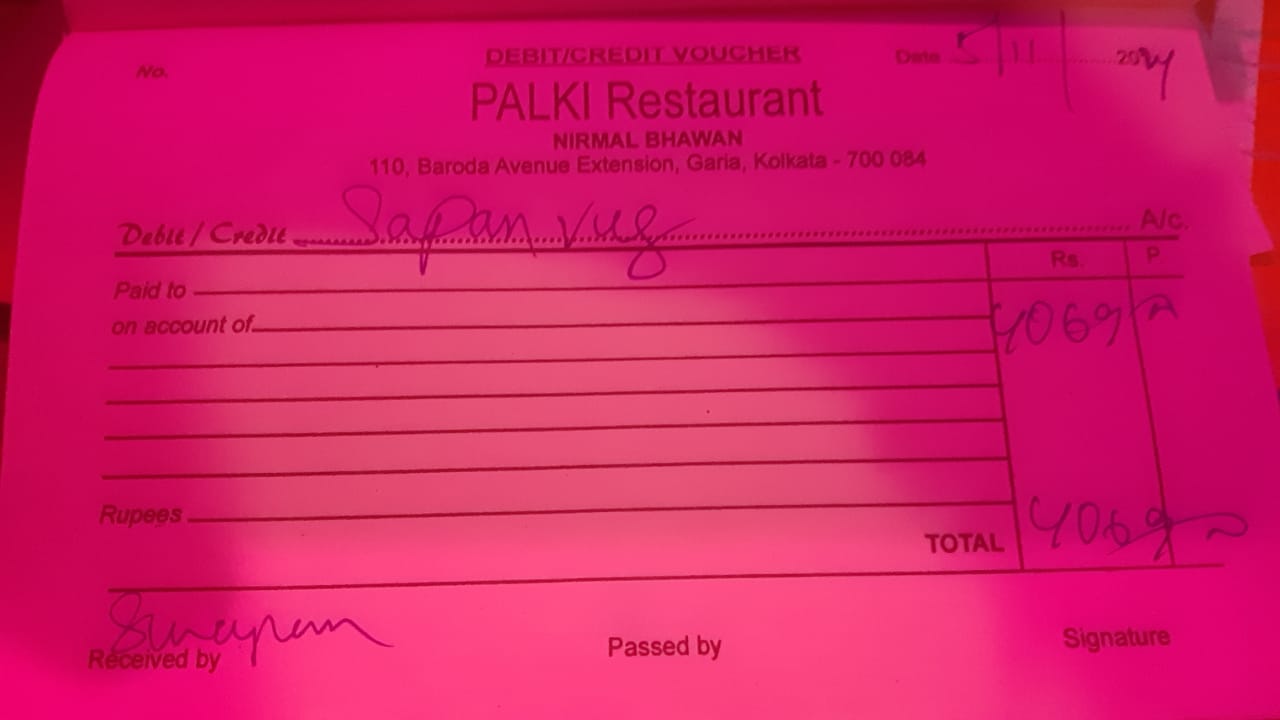 DEBIT/CREDIT VOUCHER
No. Date 5/11/2024
PALKI Restaurant
NIRMAL BHAWAN
110, Baroda Avenue Extension, Garia, Kolkata - 700 084
Debit / Credit Sapan veg A/c.
Rs. P
Paid to
on account of 4069
Rupees
TOTAL 4069
Swapan
Received by Passed by Signature